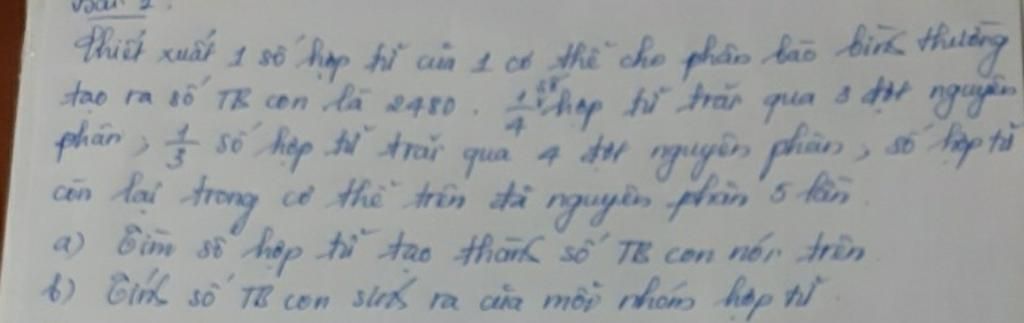 Bài 2:
Chiết xuất 1 số hợp tử của 1 cơ thể cho phân bào bình thường
tạo ra số TB con là 2480. 1/4 số hợp tử trải qua 3 đợt nguyên
phân, 1/3 số hợp tử trải qua 4 đợt nguyên phân, số hợp tử
còn lại trong cơ thể trên đã nguyên phân 5 lần.
a) Tìm số hợp tử tạo thành số TB con nói trên
b) Tính số TB con sinh ra của mỗi nhóm hợp tử.